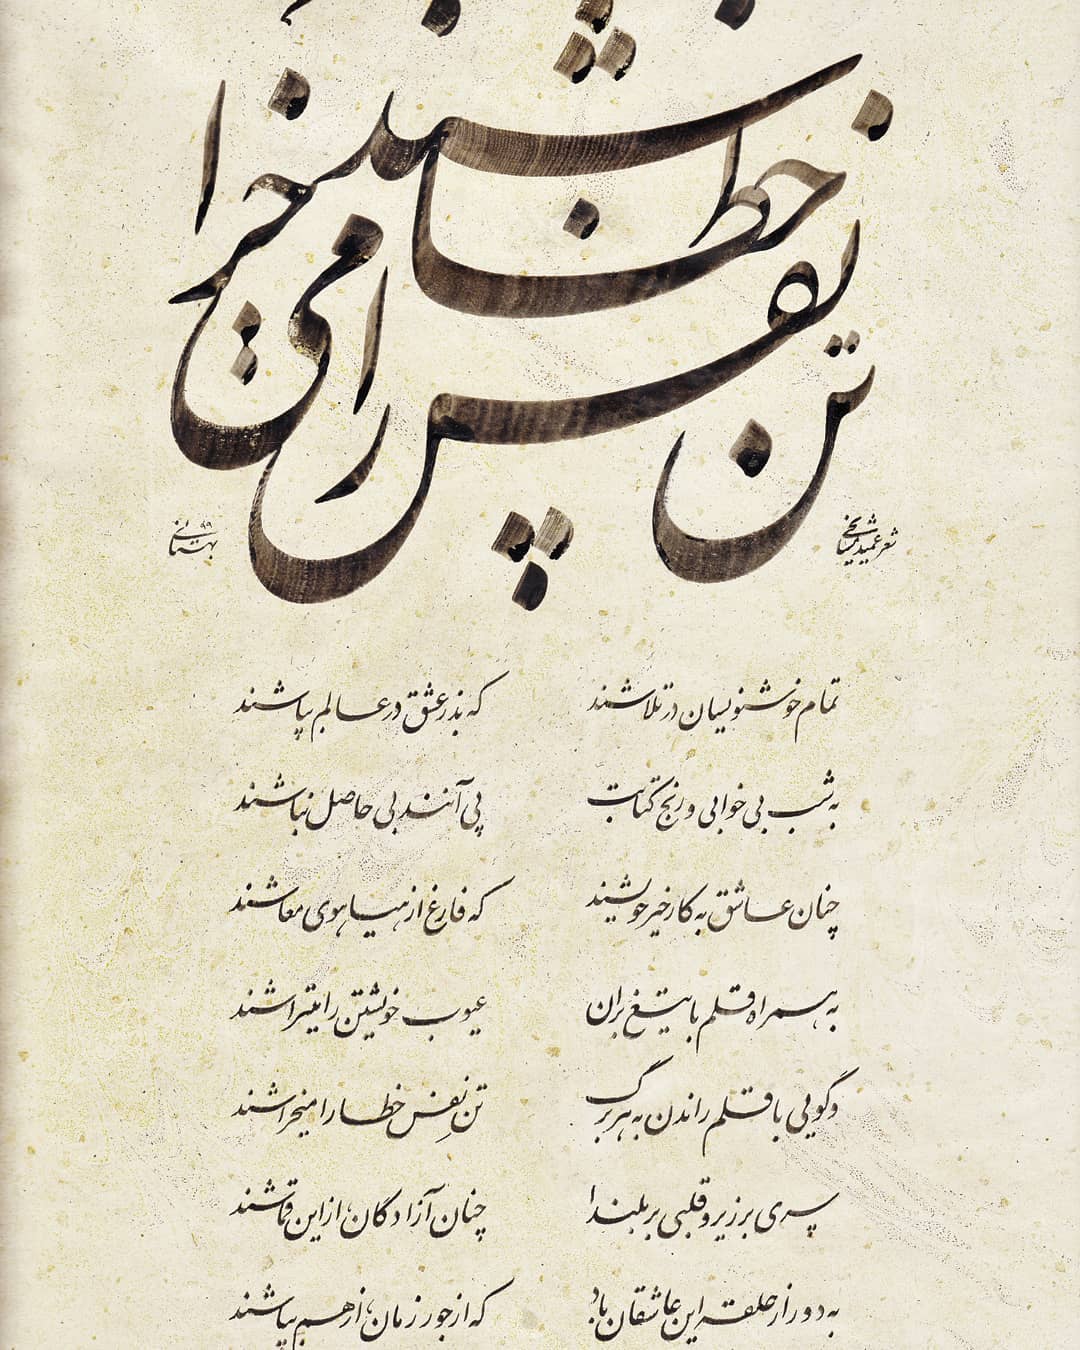 تن نفس خطا را می‌خراشند
شعر عمید مشایخی
بهتاش ۹۹
تمام خوشنویسان در تلاشند که بذر عشق در عالم بپاشند
به شب بی‌خوابی و رنج کتابت پی آنند بی حاصل نباشند
چنان عاشق به کار خیر خویشند که فارغ از هیاهوی معاشند
به همراه قلم با تیغ بران عیوب خویشتن را میتراشند
وگویی با قلم راندن به هر برگ تنِ نفس خطا را میخراشند
سری بر زیر و قلبی بر بلندا چنان آزادگان، از این قماشند
به دور از حلقه این عاشقان باد که از جور زمان، از هم بپاشند